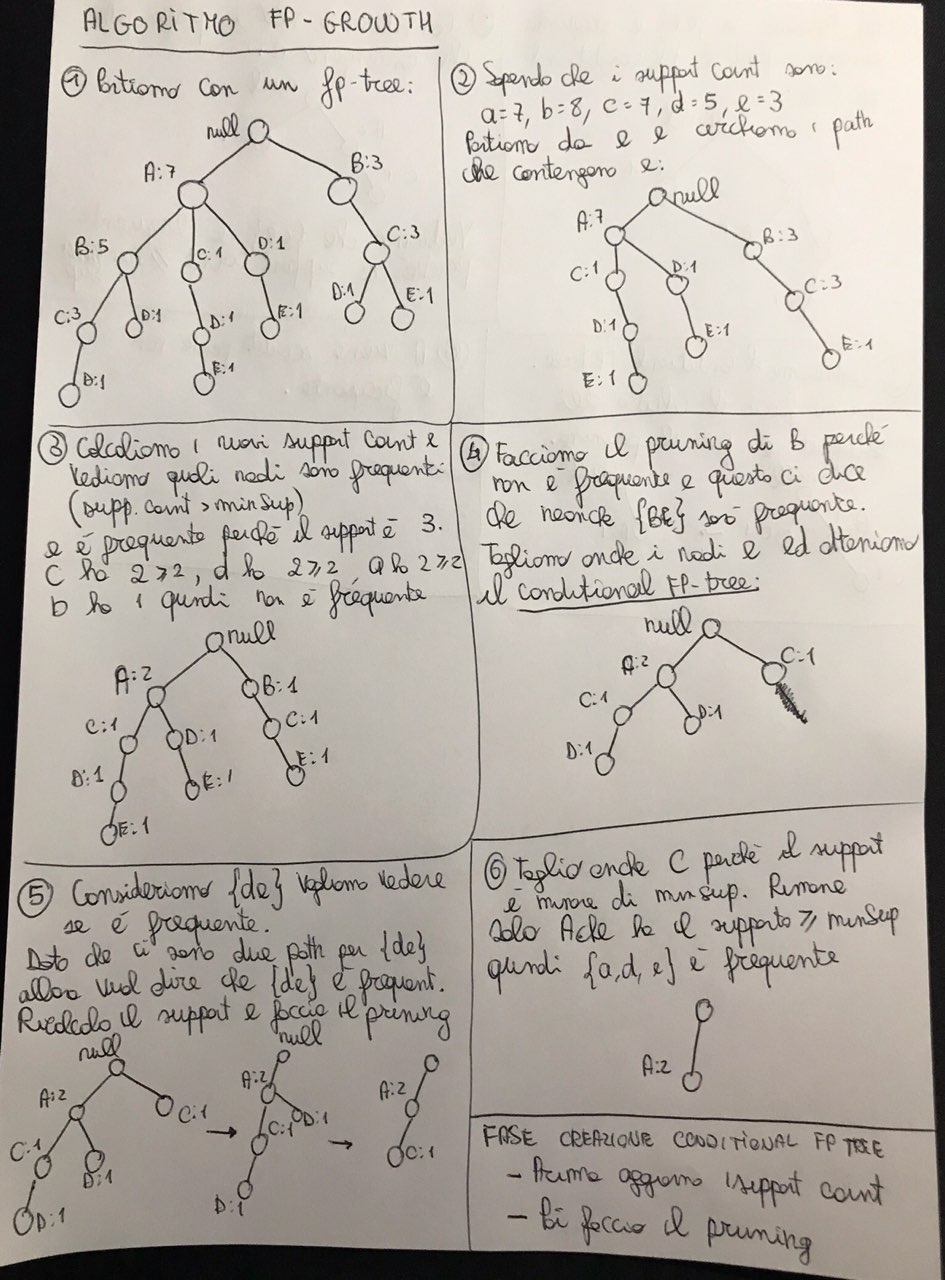 ALGORITMO FP-GROWTH
① Partiamo con un fp-tree:
null
A:7
B:3
B:5
C:1
D:1
C:3
C:3
D:1
D:1
E:1
D:1
E:1
D:1
E:1
② Sapendo che i support count sono:
a=7, b=8, c=7, d=5, e=3
Partiamo da e e cerchiamo i path
che contengono e:
null
A:7
B:3
C:1
D:1
C:3
D:1
E:1
E:1
E:1
③ Calcoliamo i nuovi support count e
vediamo quali nodi sono frequenti
(supp. count > minsup)
e è frequente perché il support è 3.
C ha 2⩾2, d ha 2⩾2, a ha 2⩾2
b ha 1 quindi non è frequente
null
A:2
B:1
C:1
D:1
C:1
D:1
E:1
E:1
E:1
④ Facciamo il pruning di B perché
non è frequente e questo ci dice
che neanche {BE} sarà frequente.
Togliamo anche i nodi e ed otteniamo
il conditional FP-tree:
null
A:2
C:1
C:1
D:1
D:1
⑤ Consideriamo {de} vogliamo vedere
se è frequente.
Dato che ci sono due path per {de}
allora vuol dire che {de} è frequent.
Ricalcolo il support e faccio il pruning
null
A:2
C:1
C:1
D:1
D:1
null
A:2
C:1
D:1
D:1
A:2
C:1
⑥ Taglio anche C perché il support
è minore di minsup. Rimane
solo A che ha il supporto ⩾ minsup
quindi {a,d,e} è frequente
A:2
FASE CREAZIONE CONDITIONAL FP TREE
- Prima aggiorno i support count
- Poi faccio il pruning